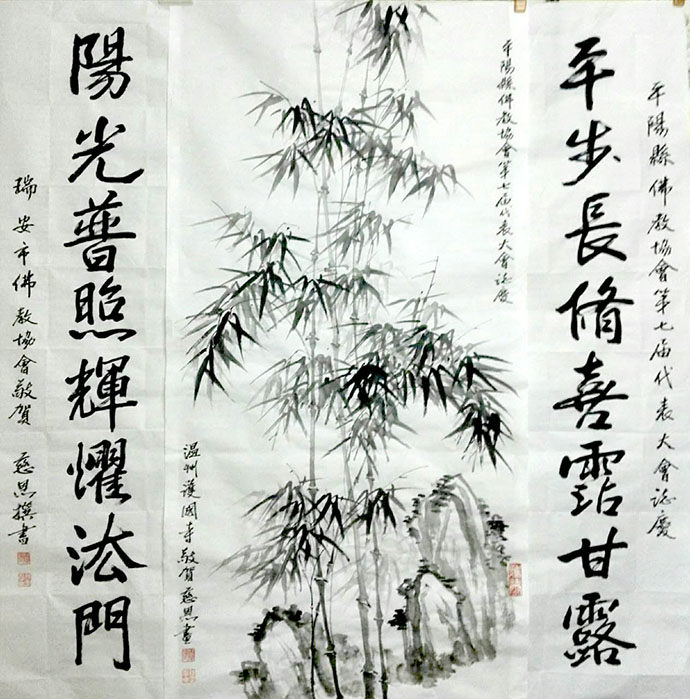 平陽縣佛教協會第七届代表大會誌慶
平步長脩喜霑甘露
平陽縣佛教協會第七届代表大會誌慶
温州護國寺敬賀慈恩畫
陽光普照輝懼法門
瑞安市佛教協會敬賀慈恩撰書